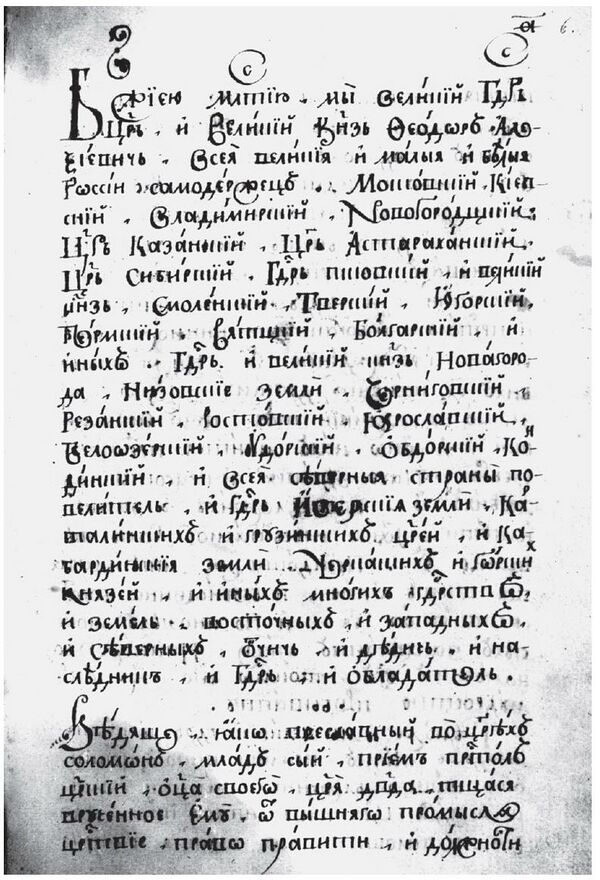 а҃ 6.
Бж҃їею млтїю · мы великїй гдр҃ь
цр҃ь · и великїй кнзь Ѳеодоръ Але-
ѯїевичь · всея великїя и малыя и бѣлыя
Россїи самодержецъ · Московскїй · Кїев-
скїй · Владимирскїй · Новогородцкїй ·
Цр҃ь Казанскїй · Цр҃ь Астараханскїй ·
Цр҃ь Сибирскїй · Гдр҃ь псковскїй · и великїй
кнзь · Смоленскїй · Тверскїй · Югорскїй ·
Пермскїй · Вятцкїй · Болгарскїй · и
иныхъ · Гдр҃ь · и великїй кнзь Новагоро-
да · Низовскїе земли · Черниговскїй ·
Резанскїй · Ростовскїй · Ярославскїй ·
Белоѡзерскїй · Удорскїй · Обдорскїй · Кон-
динскїй · и всея сѣверныя страны по-
велитель · и Гдр҃ь Иверскїя земли · Кар-
талинскихъ и грузинскихъ цр҃ей · и Ка-
бардинскїя земли · Черкаскихъ и Горских
Князей · и иныхъ многихъ гдр҃ствъ
и земель · восточныхъ · и западныхъ
и сѣверныхъ · Отчичь · и дѣдичь · и на-
слѣдникъ · и Гдр҃ь · и облаадатель ·
Вѣдящє · яко преславный во цр҃ѣхъ
соломонъ · младъ сый · прїемъ прⷭ҇толъ
цр҃скїй · оц҃а своегѡ · цр҃я дв҃да · тщася
врученное ему · ѿ вышнягѡ промысла
цр҃ствїе · право правити · и должности